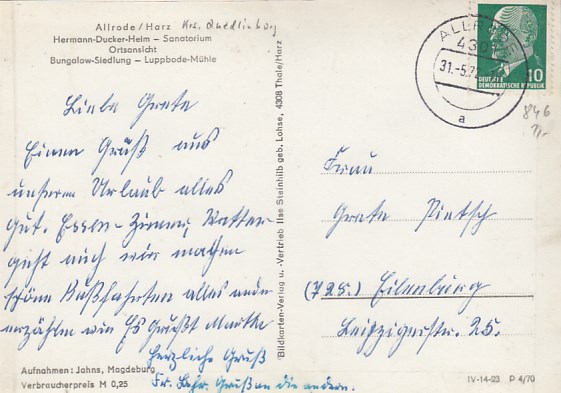 Allrode/Harz Krs. Quedlinburg
Hermann-Ducker-Heim — Sanatorium
Ortsansicht
Bungalow-Siedlung — Luppbode-Mühle
Liebe Grete
Einen Grüß aus
unserem Urlaub alles
gut. Essen - Zimmer, Wetter
geht auch wir machen
schöne Bußfahrten alles andere
erzählen wir Es Grüßt Martha
Herzliche Gruß
Fr. Gruß an die andern.
Aufnahmen: Jahns, Magdeburg
Verbraucherpreis M 0,25
Bildkarten-Verlag u. -Vertrieb Ilse Steinhilb geb. Lohse, 4308 Thale/Harz
ALLRODE
4301
31.-5.72
a
DEUTSCHE
DEMOKRATISCHE REPUBLIK
10
846
Frau
Grete Pietsch
(725.) Eilenburg
Leipzigerstr. 25.
IV-14-23 P 4/70